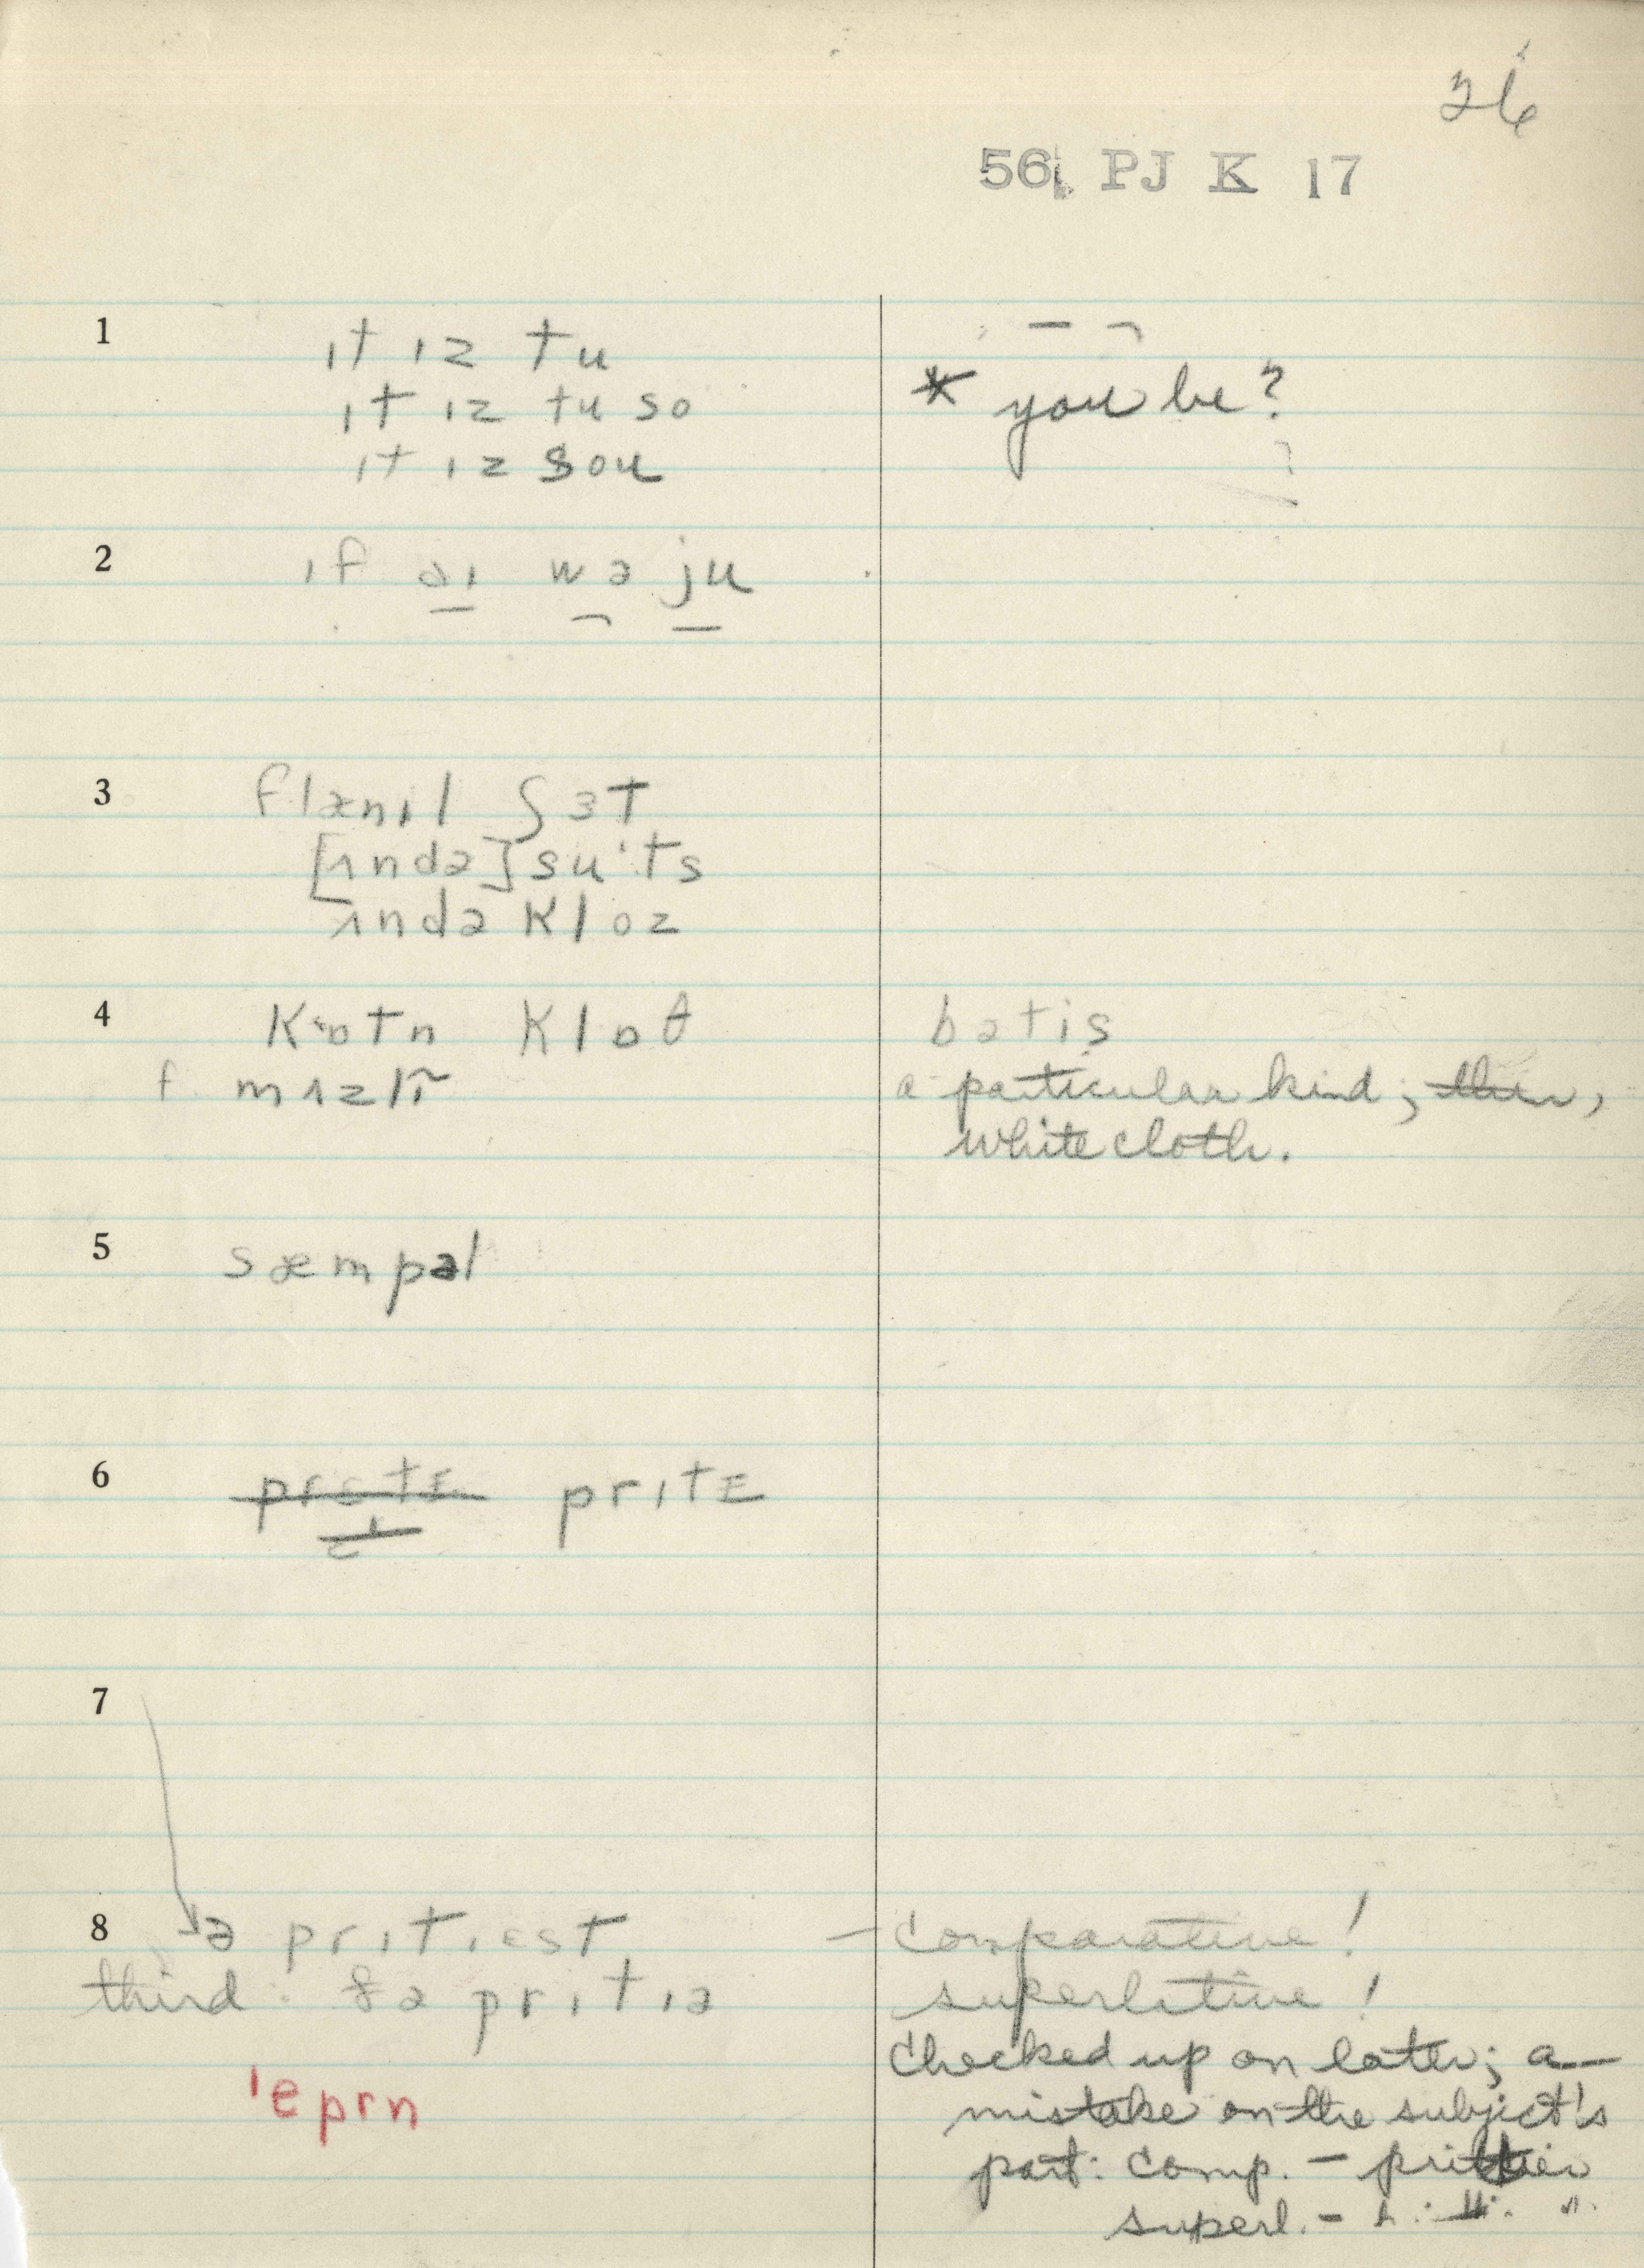 26
56 PJ K 17
1 ɪt ɪz tu
ɪt ɪz tu so
ɪt ɪz sou
* you be?
2 ɪf aɪ wə ju
3 flænɪl ʃɜt
[ʌndə] su·ts
ʌndə kloz
4 kɒtn klɒθ
f. mʌzlɪ̃
batis
a particular kind; thin,
white cloth.
5 sæmpəl
6 prɪtɛ
7
8 ə prɪtɪɛst
third: ðə prɪtɪə
— comparative!
superlative!
Checked up on later; a
mistake on the subject's
part: comp. — prittier
superl. —
ˈeprn